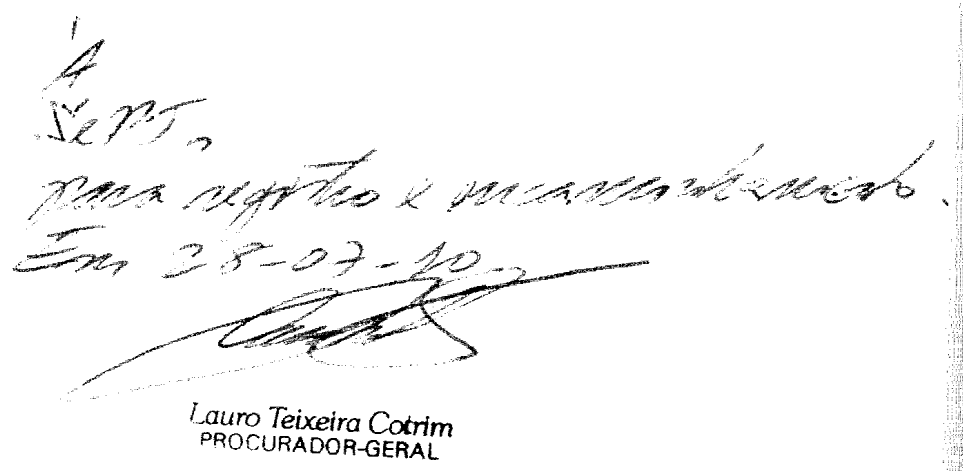 À
SePT,
para registro e encaminhamento.
Em 28-07-10
Lauro Teixeira Cotrim
PROCURADOR-GERAL